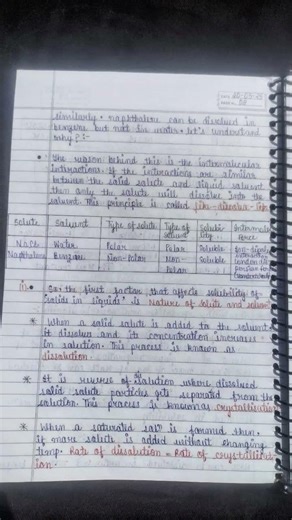 Similarly, napthalene can be dissolved in
benzene but not in water. Let's understand
why?:-
The reason behind this is the intermolecular
interactions. If the interactions are similar
between the solid solute and liquid solvent
then only the solute will dissolve into the
solvent. This principle is called like dissolve like
Solute Solvent Type of solute Type of solvent Solubility Intermole force
NaCl Water Polar Polar Soluble
Napthalene Benzene Non-Polar Non Polar Soluble
So the first factor that affects solubility of
solids in liquids is Nature of Solute and Solvent
* When a solid solute is added to the solvent
it dissolves and its concentration increases
in solution. This process is known as
dissolution.
* It is reverse of solution where dissolved
solid solute particles gets separated from the
solution. This process is known as crystallisation
* When a saturated solⁿ is formed then
if more solute is added without changing
temp. Rate of dissolution = Rate of crystallisat
ion